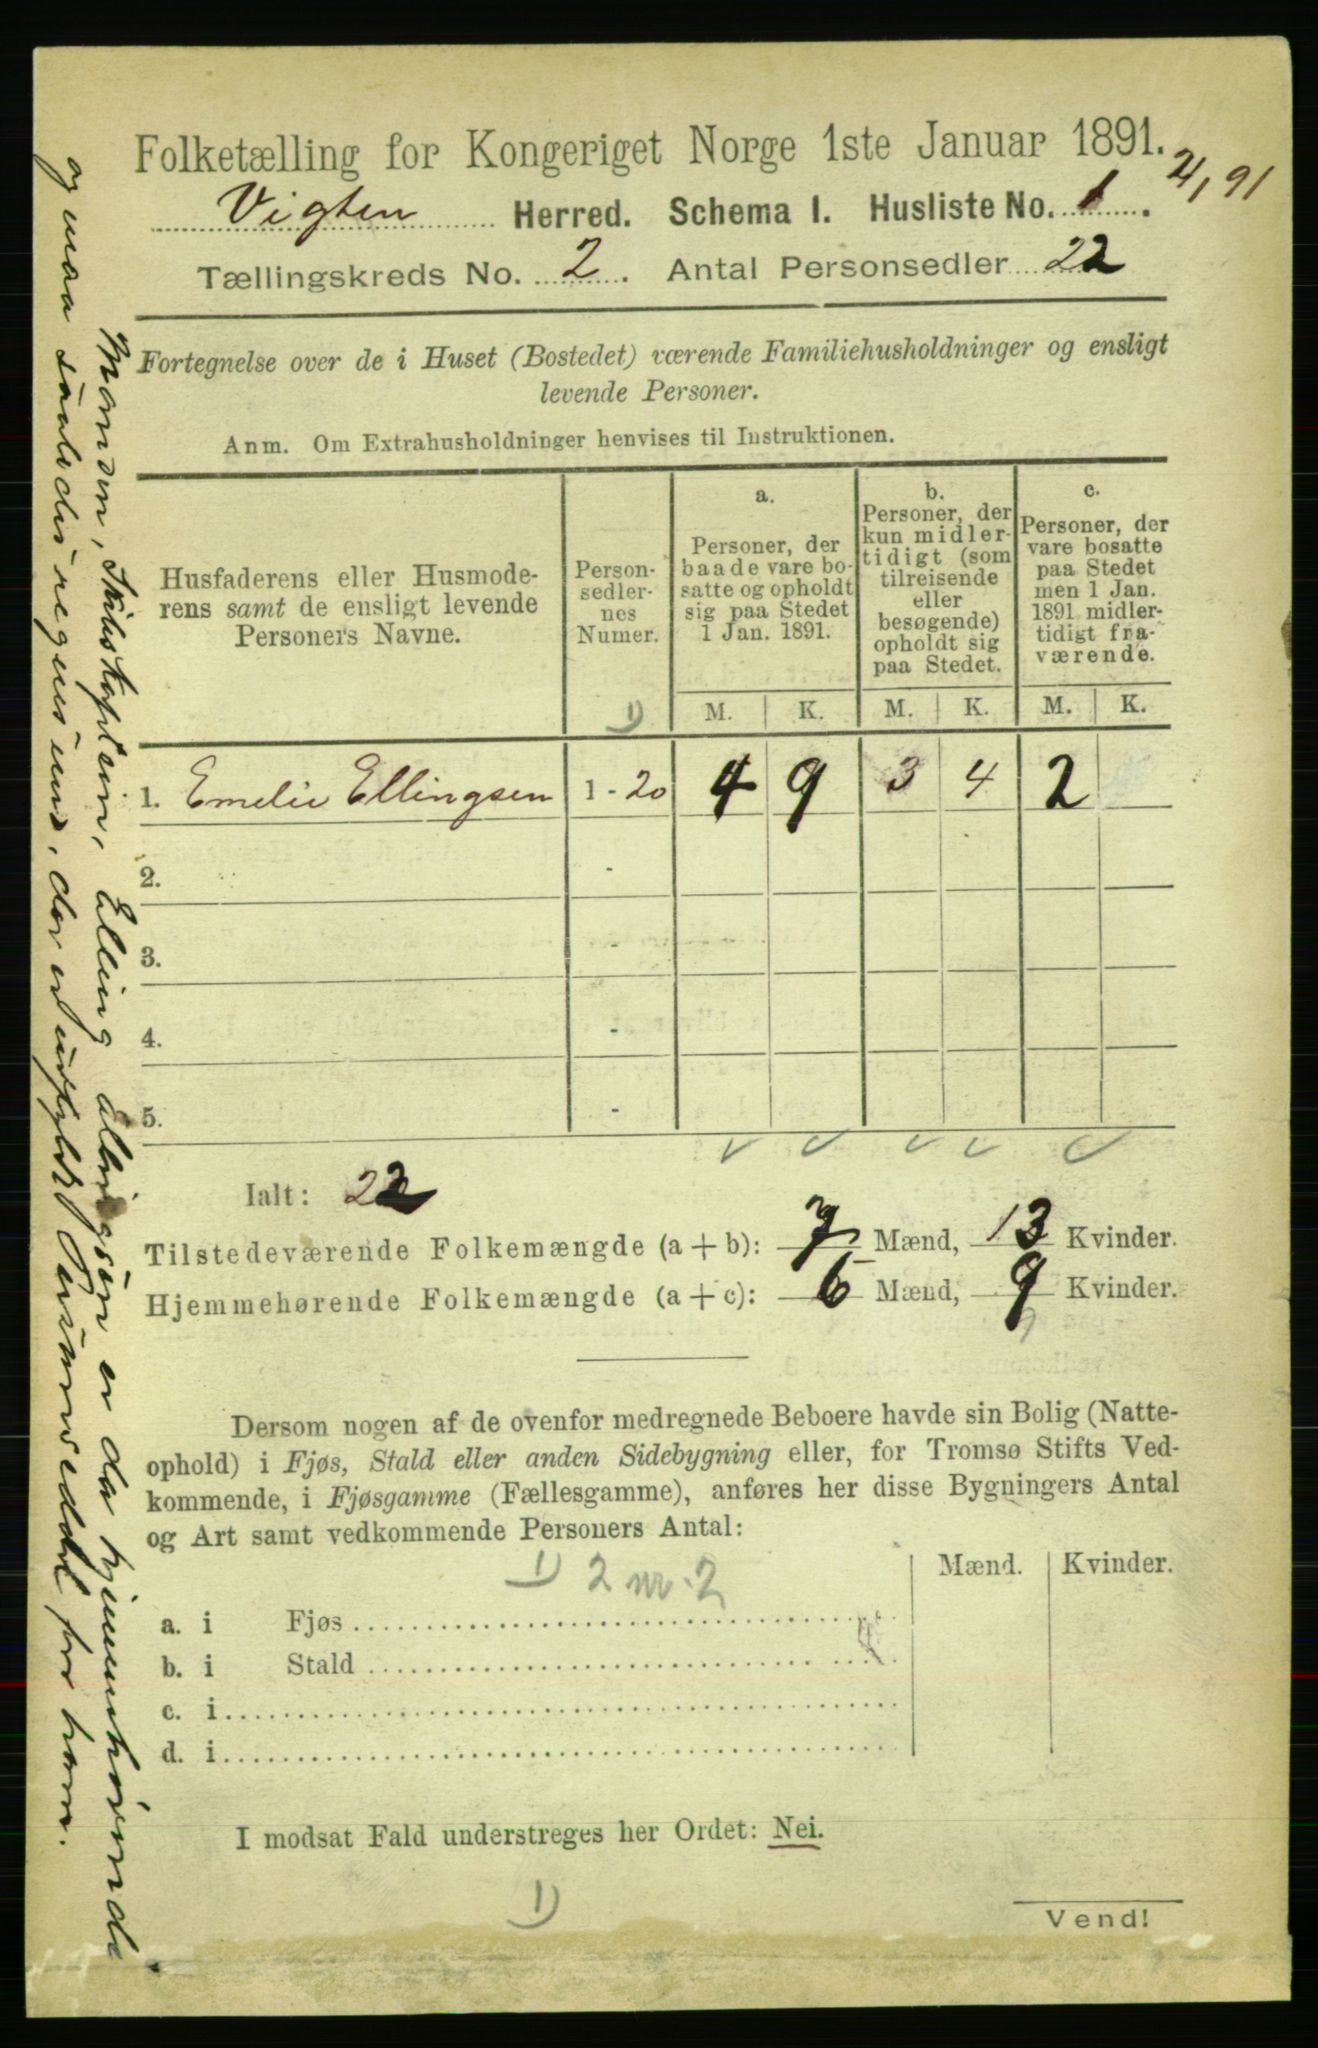 Folketælling for Kongeriget Norge 1ste Januar 1891.
2/1 91
Vigten Herred. Schema I. Husliste No. 1.
Tællingskreds No. 2. Antal Personsedler 22
Fortegnelse over de i Huset (Bostedet) værende Familiehusholdninger og ensligt
levende Personer.
Anm. Om Extrahusholdninger henvises til Instruktionen.
Husfaderens eller Husmode-
rens samt de ensligt levende
Personers Navne.
Person-
sedler-
nes
Numer.
1)
a.
Personer, der
baade vare bo-
satte og opholdt
sig paa Stedet
1 Jan. 1891.
b.
Personer, der
kun midler-
tidigt (som
tilreisende
eller
besøgende)
opholdt sig
paa Stedet.
c.
Personer, der
vare bosatte
paa Stedet
men 1 Jan.
1891 midler-
tidigt fra-
værende.
M. K. M. K. M. K.
1. Emelie Ellingsen 1 - 20 4 9 3 4 2
2. -
3. -
4. -
5. -
Ialt: 22
Tilstedeværende Folkemængde (a + b): 7 Mænd, 13 Kvinder.
Hjemmehørende Folkemængde (a + c): 6 Mænd, 9 Kvinder.
Dersom nogen af de ovenfor medregnede Beboere havde sin Bolig (Natte-
ophold) i Fjøs, Stald eller anden Sidebygning eller, for Tromsø Stifts Ved-
kommende, i Fjøsgamme (Fællesgamme), anføres her disse Bygningers Antal
og Art samt vedkommende Personers Antal:
1) 2 nr. 2
Mænd. Kvinder.
a. i Fjøs
b. i Stald
c. i
d. i
I modsat Fald understreges her Ordet: Nei.
1)
Vend!
Manden, Skibskaptein, Elling Ellingsen er da hjemmehørende
og maa saaledes regnes med, der er udfyldt Personseddel for ham.